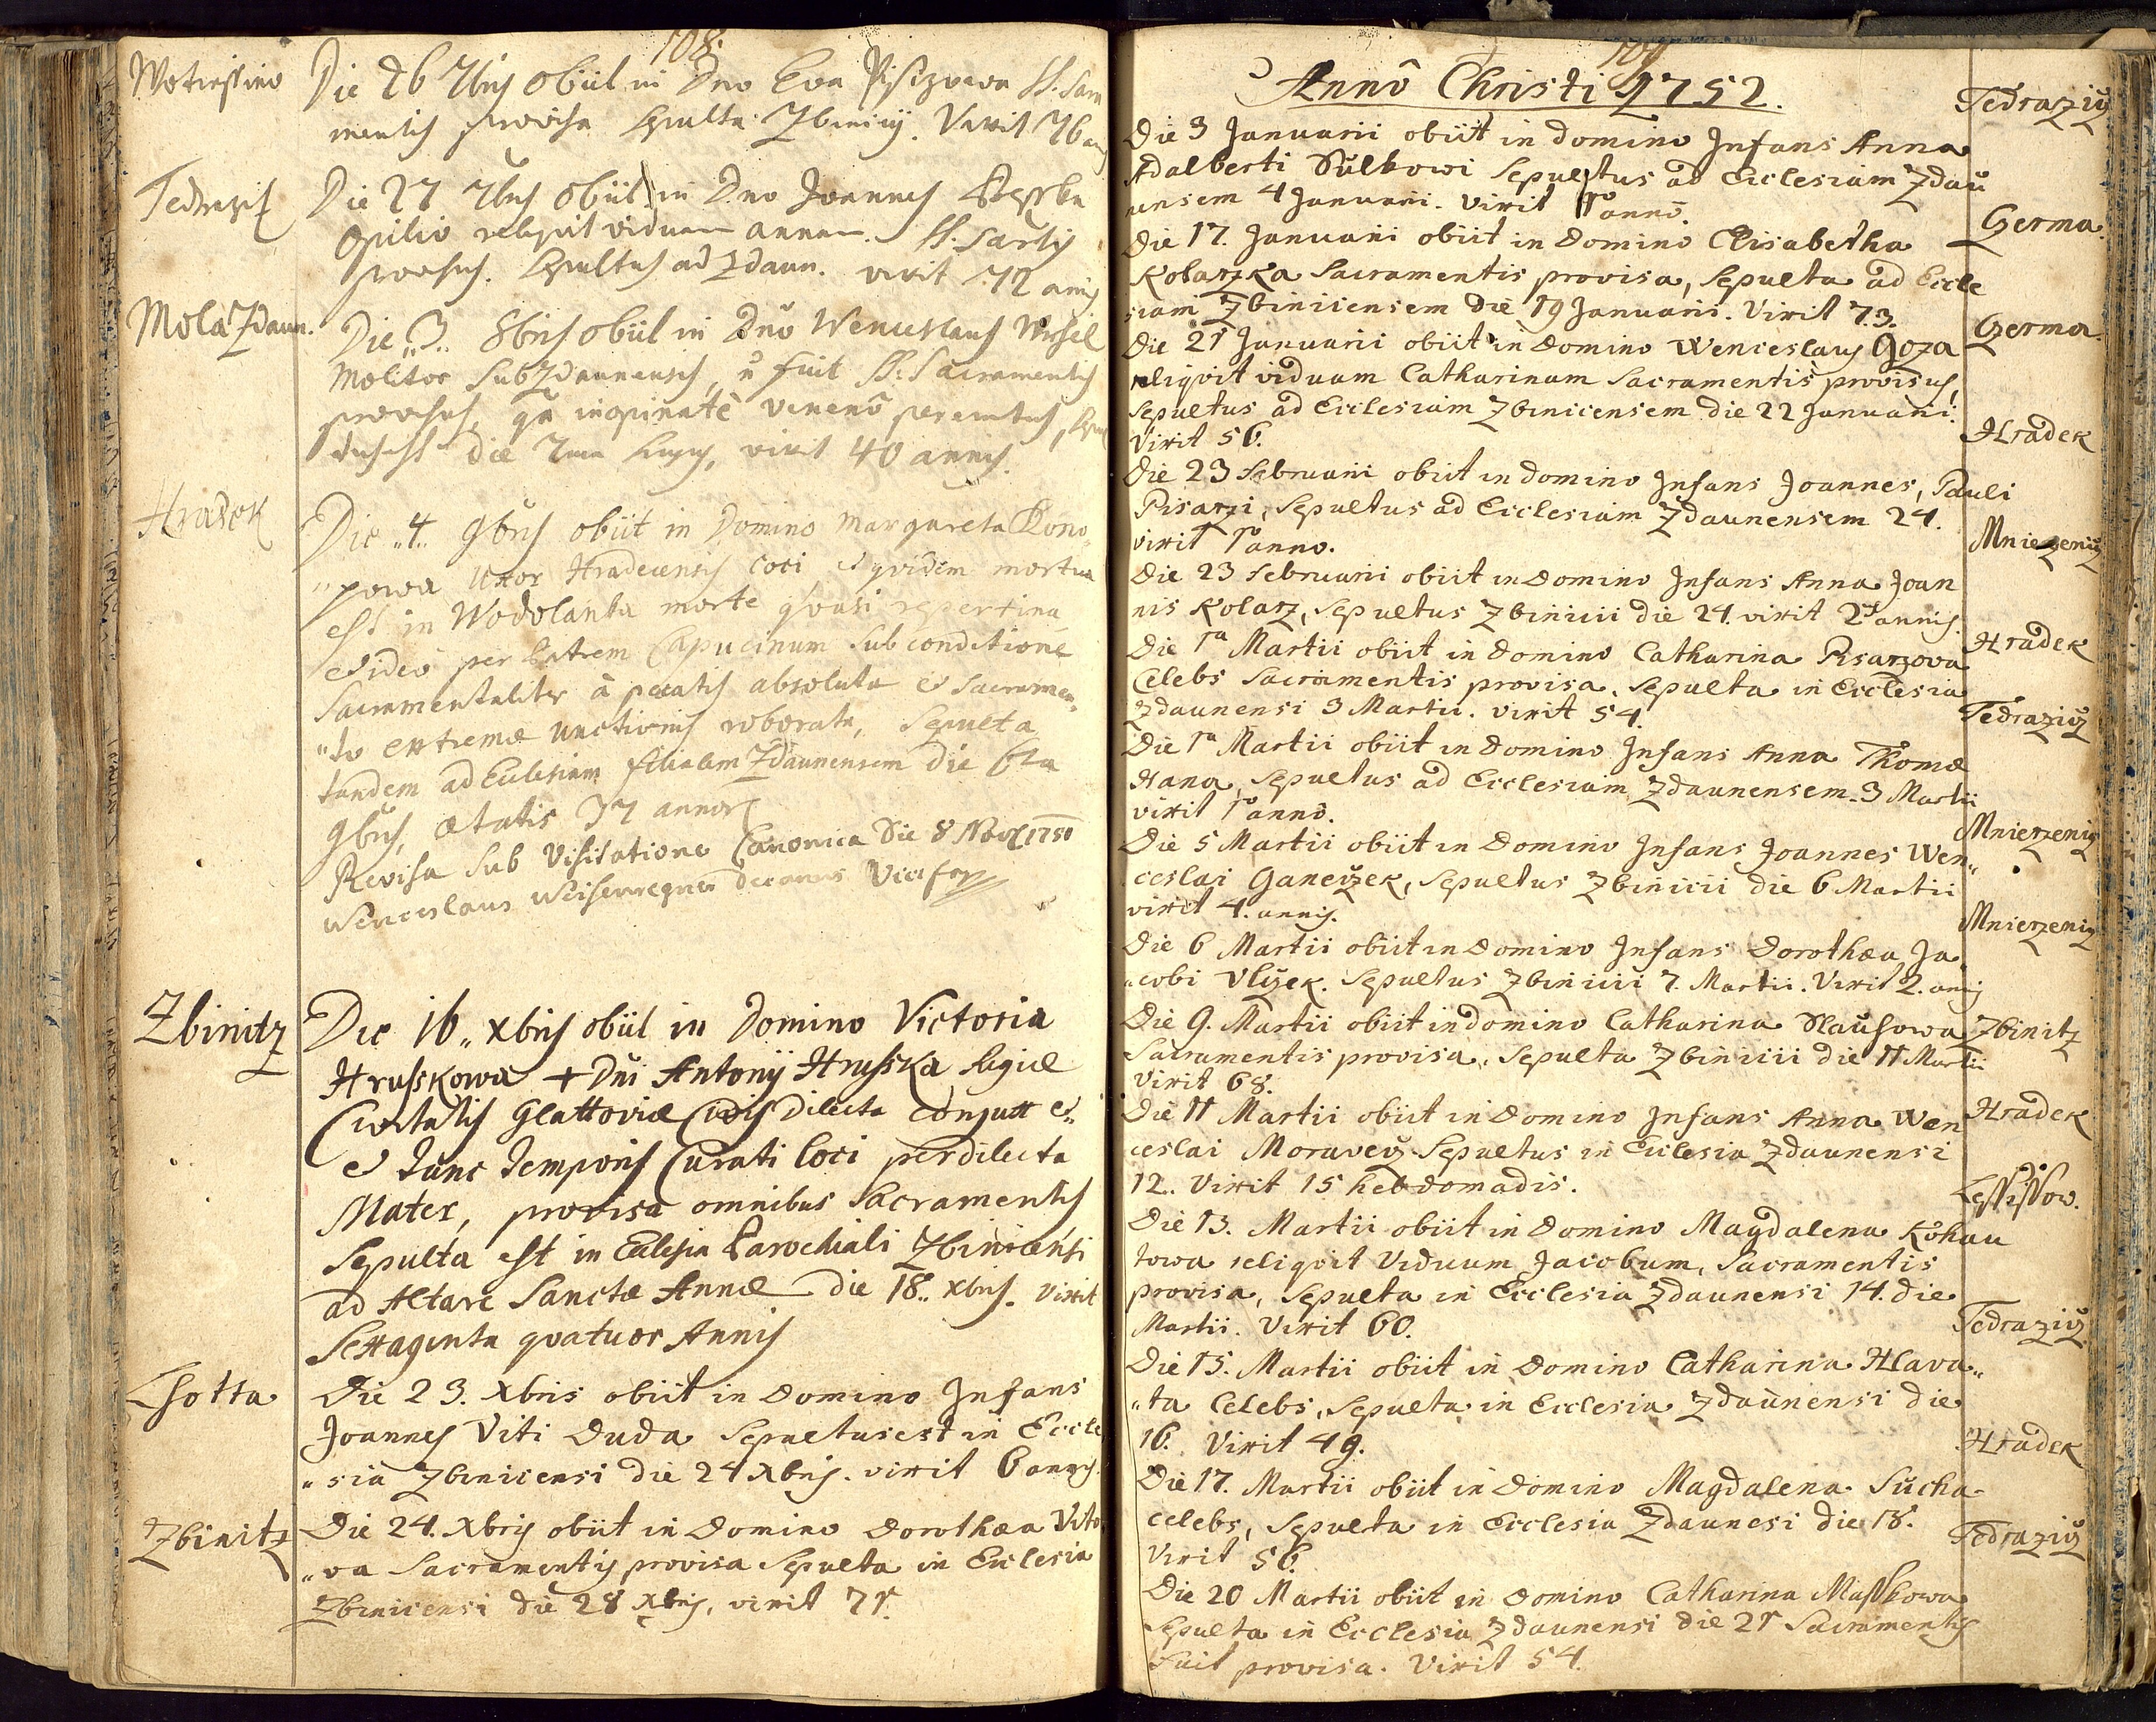 108.
Wotiessino
Die 26 7bris obiit in Dno Eva SS. Sacra
mentis provisa Sepulta Zbinicij. Vixit 76 annis
Tedrazitz
Die 27 7bris obiit in Dno Joannes
Opilio reliquit viduam annam. SS. Sacris
provisus. Sepultus ad Zdaun. vixit 72 annis
Mola Zdaun.
Die „3„ 8bris obiit in Dno Wenceslaus
Molitor Sub Zdaunensis, n fuit SS: Sacramentis
provisus, qa inopinatè venenô peremtus,
die huius, vixit 40 annis.
Hradek
Die „4„ 9bris obiit in Domino Margareta Kono„
„powa Uxor Hradecensis Coci, et quidem mortua
est in Wodolanka morte quasi repertina
et ideo per Patrem Capucinum sub conditione
Sacramentaliter à pecatis absoluta et Sacramen„
„to extremæ unctionis roborata, Sepulta
tandem ad Ecclesiam filialem Zdaunensem die 6ta
9bris, ætatis 37 annor
Revisa sub Visitatione Canonica Die 8 Nov 1751
Wenceslaus decanus Vic for
Zbinitz
Die 16„ Xbris obiit in Domino Victoria
Hrusskowa + Dni Antonij Hrusska Regiæ
Civitatis Glattoviæ Civis dilecta conjux et„
et tunc temporis Curati loci perdilecta
Mater, provisa omnibus Sacramentis
Sepulta est in Ecclesia Parochiali Zbinicensi
ad Altare Sanctæ Annæ die 18„ Xbris. vixit
Sexaginta quatuor Annis
Lhotta
Die 23. Xbris obiit in Domino Infans
Joannes Viti Duda Sepultus est in Eccle
„sia Zbinicensi die 24 Xbris. vixit 6 annis
Zbinitz
Die 24. Xbris obiit in Domino Dorothæa Vito
„va Sacramentis provisa Sepulta in Ecclesia
Zbinicensi die 28 Xbris, vixit 71.
109
Annô Christi 1752.
Tedraziz
Die 3 Januarii obiit in domino Infans Anna
Adalberti Sulkowi Sepultus ad Ecclesiam Zdau
nensem 4 Januarii. vixit 1 anno.
Germa.
Die 17. Januarii obiit in Domino Elisabetha
Kolarzka Sacramentis provisa, Sepulta ad Eccle
siam Zbinicensem die 19 Januarii. Vixit 73.
Czerma
Die 21 Januarii obiit in Domino Wenceslaus Goza
reliqvit viduam Catharinam Sacramentis provisus
Sepultus ad Ecclesiam Zbinicensem die 22 Januarii.
Vixit 56.
Hradek
Die 23 Februarii obiit in domino Infans Joannes, Pauli
Pisarzi, Sepultus ad Ecclesiam Zdaunensem 24.
vixit 1 anno.
Mniezeniz
Die 23 Februarii obiit in Domino Infans Anna Joan
nis Kolarz, Sepultus Zbinicii die 24. vixit 2 annis.
Hradek
Die 1a Martii obiit in domino Catharina Pisarzova
Celebs Sacramentis provisa, Sepulta in Ecclesia
Zdaunensi 3 Martii. vixit 54.
Tedraziz
Die 1a Martii obiit in Domino Infans Anna Thomæ
Hana, Sepultus ad Ecclesiam Zdaunensem 3 Martii
vixit 1 anno.
Mnierzeniz
Die 5 Martii obiit in Domino Infans Joannes Wen„
ceslai Ganeczek, Sepultus Zbinicii die 6 Martii
vixit 4. annis.
Mnierzeniz
Die 6 Martii obiit in Domino Infans Dorothæa Ja„
„cobi Vlczek. Sepultus Zbinicii 7. Martii. Vixit 2. annis
Zbinitz
Die 9. Martii obiit in domino Catharina Slausowa
Sacramentis provisa, Sepulta Zbinicii die 11 Martii
Vixit 68.
Hradek
Die 11 Martii obiit in Domino Infans Anna Wen
ceslai Moravecz Sepultus in Ecclesia Zdaunensi
12. Vixit 15 hebdomadis.
Lessissow.
Die 13. Martii obiit in Domino Magdalena Kohau
towa reliqvit Viduum Jacobum, Sacramentis
provisa, Sepulta in Ecclesia Zdaunensi 14. die
Martii. Vixit 60.
Tedraziz
Die 15. Martii obiit in Domino Catharina Hlava„
„ta Celebs, Sepulta in Ecclesia Zdaunensi die
16. Vixit 49.
Hradek
Die 17. Martii obiit in Domino Magdalena Sucha
celebs, Sepulta in Ecclesia Zdaunesi die 18.
Vixit 56.
Tedraziz
Die 20 Martii obiit in Domino Catharina Masskowa
Sepulta in Ecclesia Zdaunensi die 21 Sacramentis
Fuit provisa. Vixit 54.